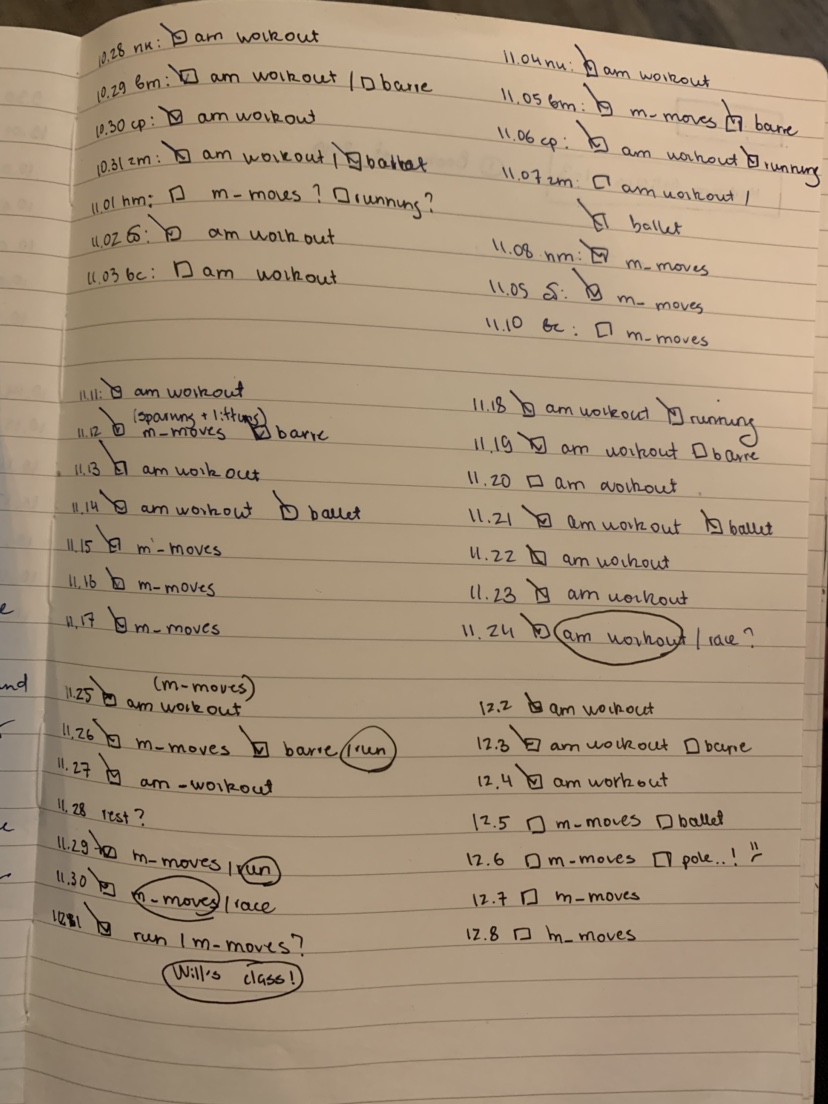 10.28 пн: ☑ am workout
10.29 вт: ☑ am workout / ☐ barre
10.30 ср: ☑ am workout
10.31 чт: ☑ am workout / ☑ ballet
11.01 пт: ☐ m-moves? ☐ running?
11.02 сб: ☑ am workout
11.03 вс: ☐ am workout
11.04 пн: ☑ am workout
11.05 вт: ☑ m-moves ☑ barre
11.06 ср: ☑ am workout ☑ running
11.07 чт: ☐ am workout /
☑ ballet
11.08 пт: ☑ m-moves
11.09 сб: ☑ m-moves
11.10 вс: ☐ m-moves
11.11: ☑ am workout
(sparring + lifting)
11.12 ☑ m-moves ☑ barre
11.13 ☑ am workout
11.14 ☑ am workout ☑ ballet
11.15 ☑ m-moves
11.16 ☑ m-moves
11.17 ☑ m-moves
11.18 ☑ am workout ☑ running
11.19 ☑ am workout ☐ barre
11.20 ☐ am workout
11.21 ☑ am workout ☑ ballet
11.22 ☑ am workout
11.23 ☑ am workout
11.24 ☑ am workout / race?
(m-moves)
11.25 ☑ am workout
11.26 ☑ m-moves ☑ barre / run
11.27 ☑ am-workout
11.28 rest?
11.29 ☑ m-moves / run
11.30 ☑ m-moves / race
☑ run / m-moves?
Will's class!
12.2 ☑ am workout
12.3 ☑ am workout ☐ barre
12.4 ☑ am workout
12.5 ☐ m-moves ☐ ballet
12.6 ☐ m-moves ☐ pole..!
12.7 ☐ m-moves
12.8 ☐ m-moves